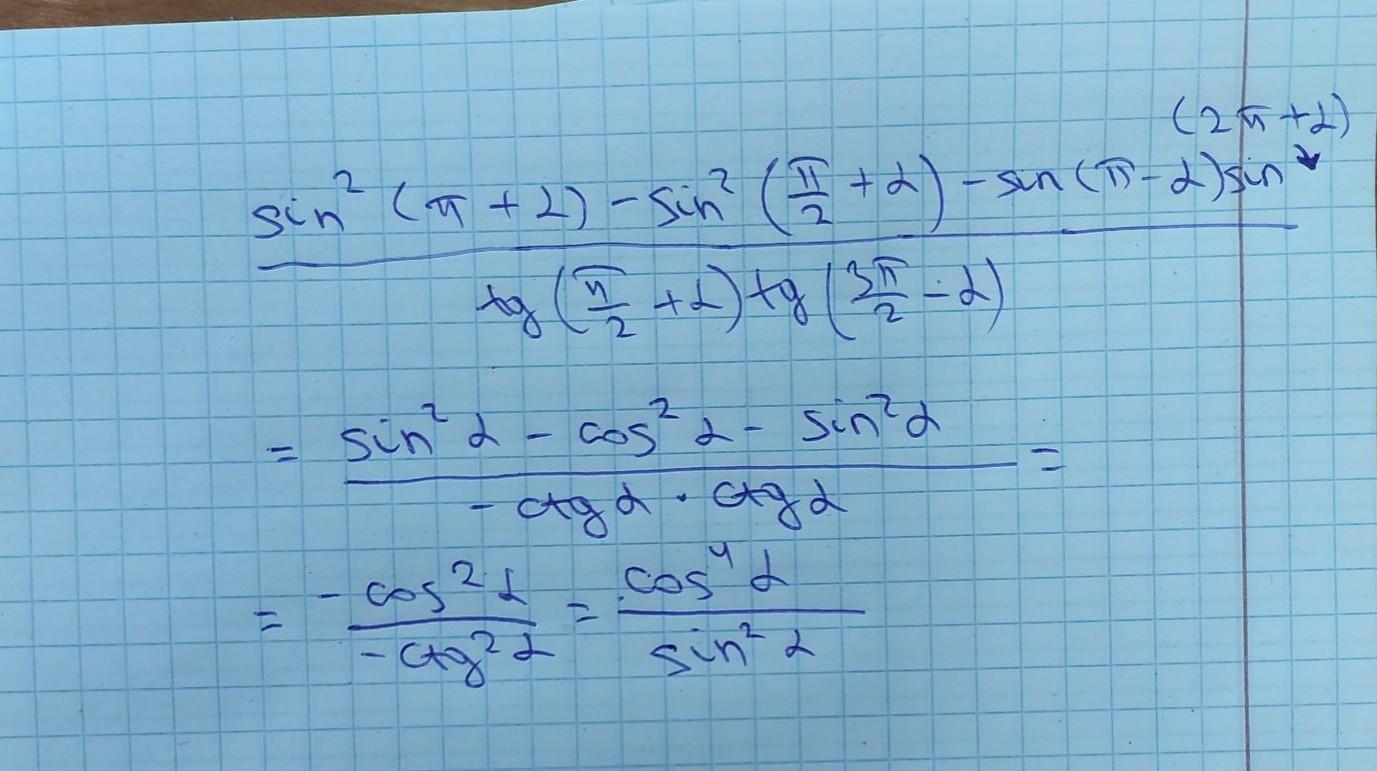 (2π + α)
sin² (π + α) - sin² (π/2 + α) - sin (π - α) sin ↘
tg (π/2 + α) tg (3π/2 - α)
= sin² α - cos² α - sin² α =
- ctg α · ctg α
= - cos² α / - ctg² α = cos⁴ α / sin² α